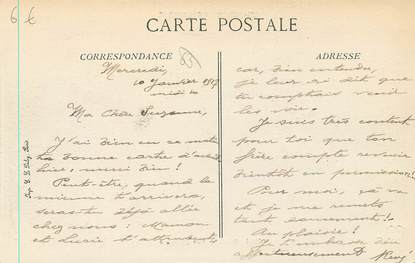 6 €
CARTE POSTALE
CORRESPONDANCE
Mercredi,
10 Janvier 1917
midi
Ma Chère Suzanne,
J'ai bien eu ce matin
ta bonne carte d'
hier, merci bien !
Peut-être, quand la
mienne t'arrivera,
seras-tu déjà allée
chez nous : Maman
et Lucie t'attendent,
ADRESSE
car, bien entendu,
je leur ai dit que
tu comptais venir
les voir.
Je suis très content
pour toi que ton
frère compte revenir
bientôt en permission !
Pour moi, ça va
et je me remets
tout doucement !
Au plaisir !
Je t'embrasse bien
affectueusement